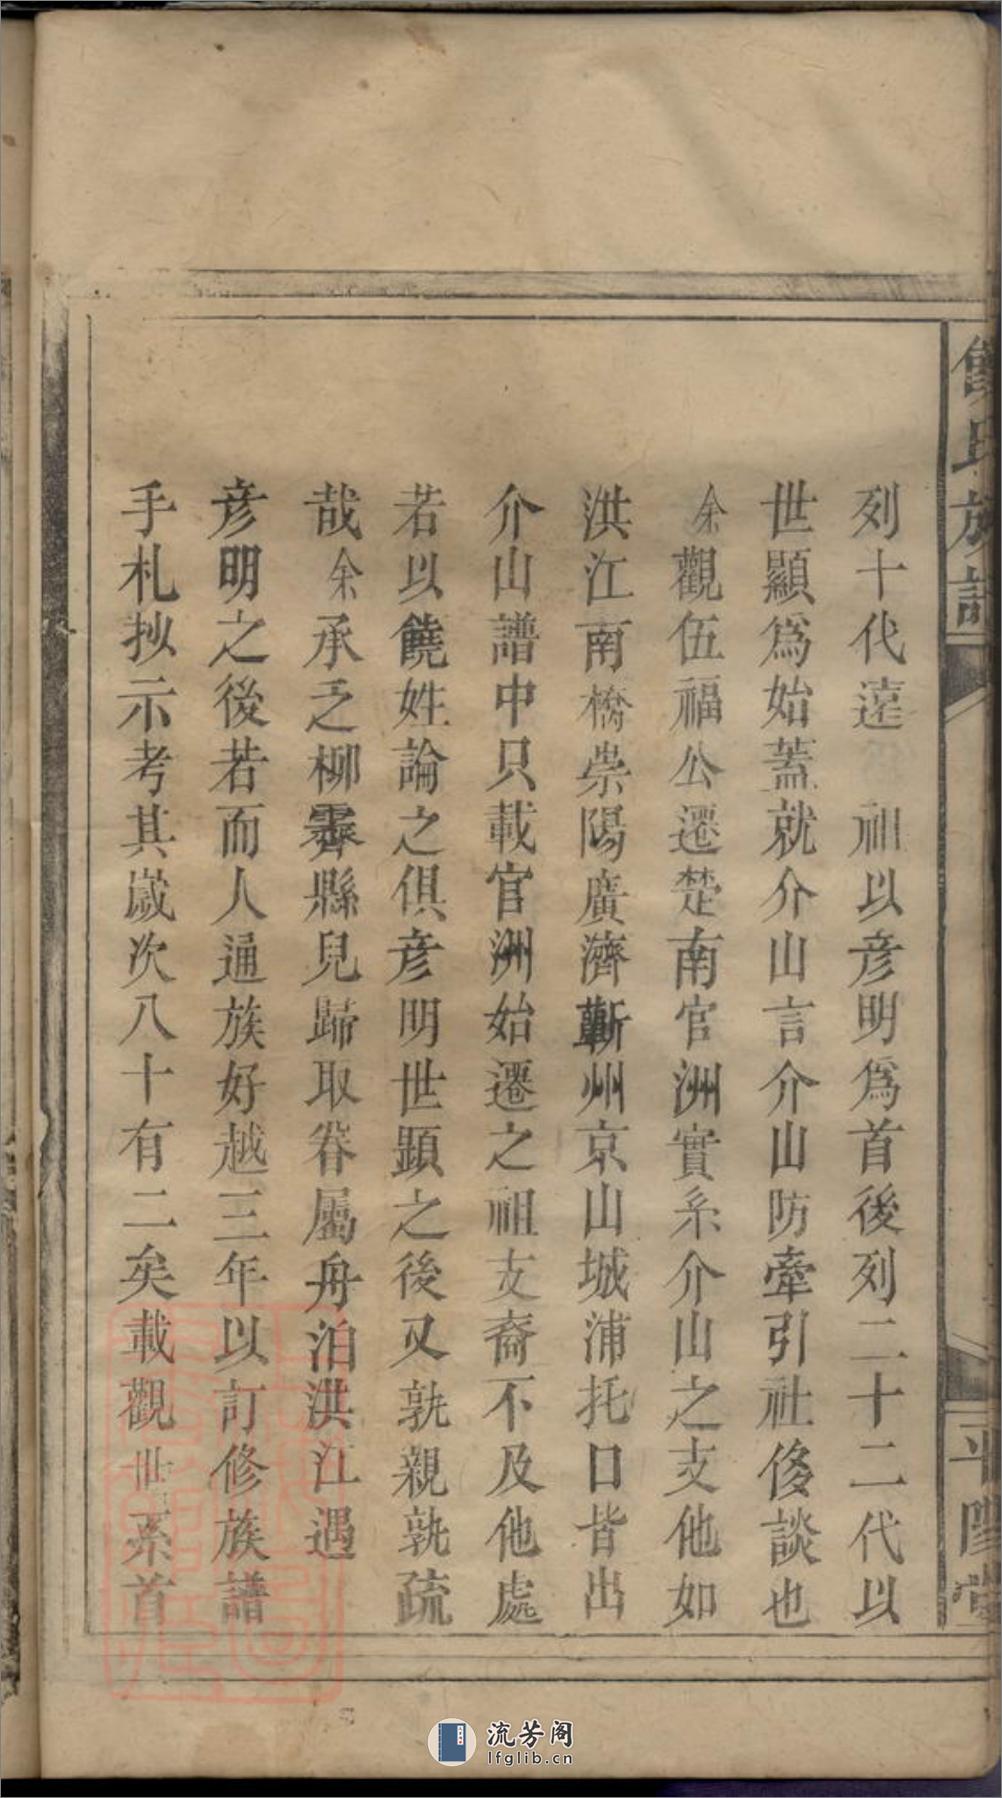 列十代遠 祖以彦明爲首後列二十二代以
世顯爲始蓋就介山言介山防牽引社後談也
余觀伍福公遷楚南官洲實系介山之支他如
洪江南橋崇陽廣濟蘄州京山城浦托口皆出
介山譜中只載官洲始遷之祖支裔不及他處
若以饒姓論之俱彦明世顕之後又孰親孰疏
哉余承乏柳霽縣兒歸取眷屬舟泊洪江遇
彦明之後若而人通族好越三年以訂修族譜
手札抄示考其嵗次八十有二矣載觀世系首
氏族譜
平陽堂
流芳阁
lfglib.cn